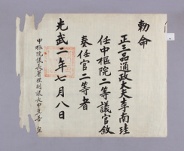 勅命
正三品通政大夫李南珪
任中樞院二等議官敘
奏任官二等者
光武二年七月八日